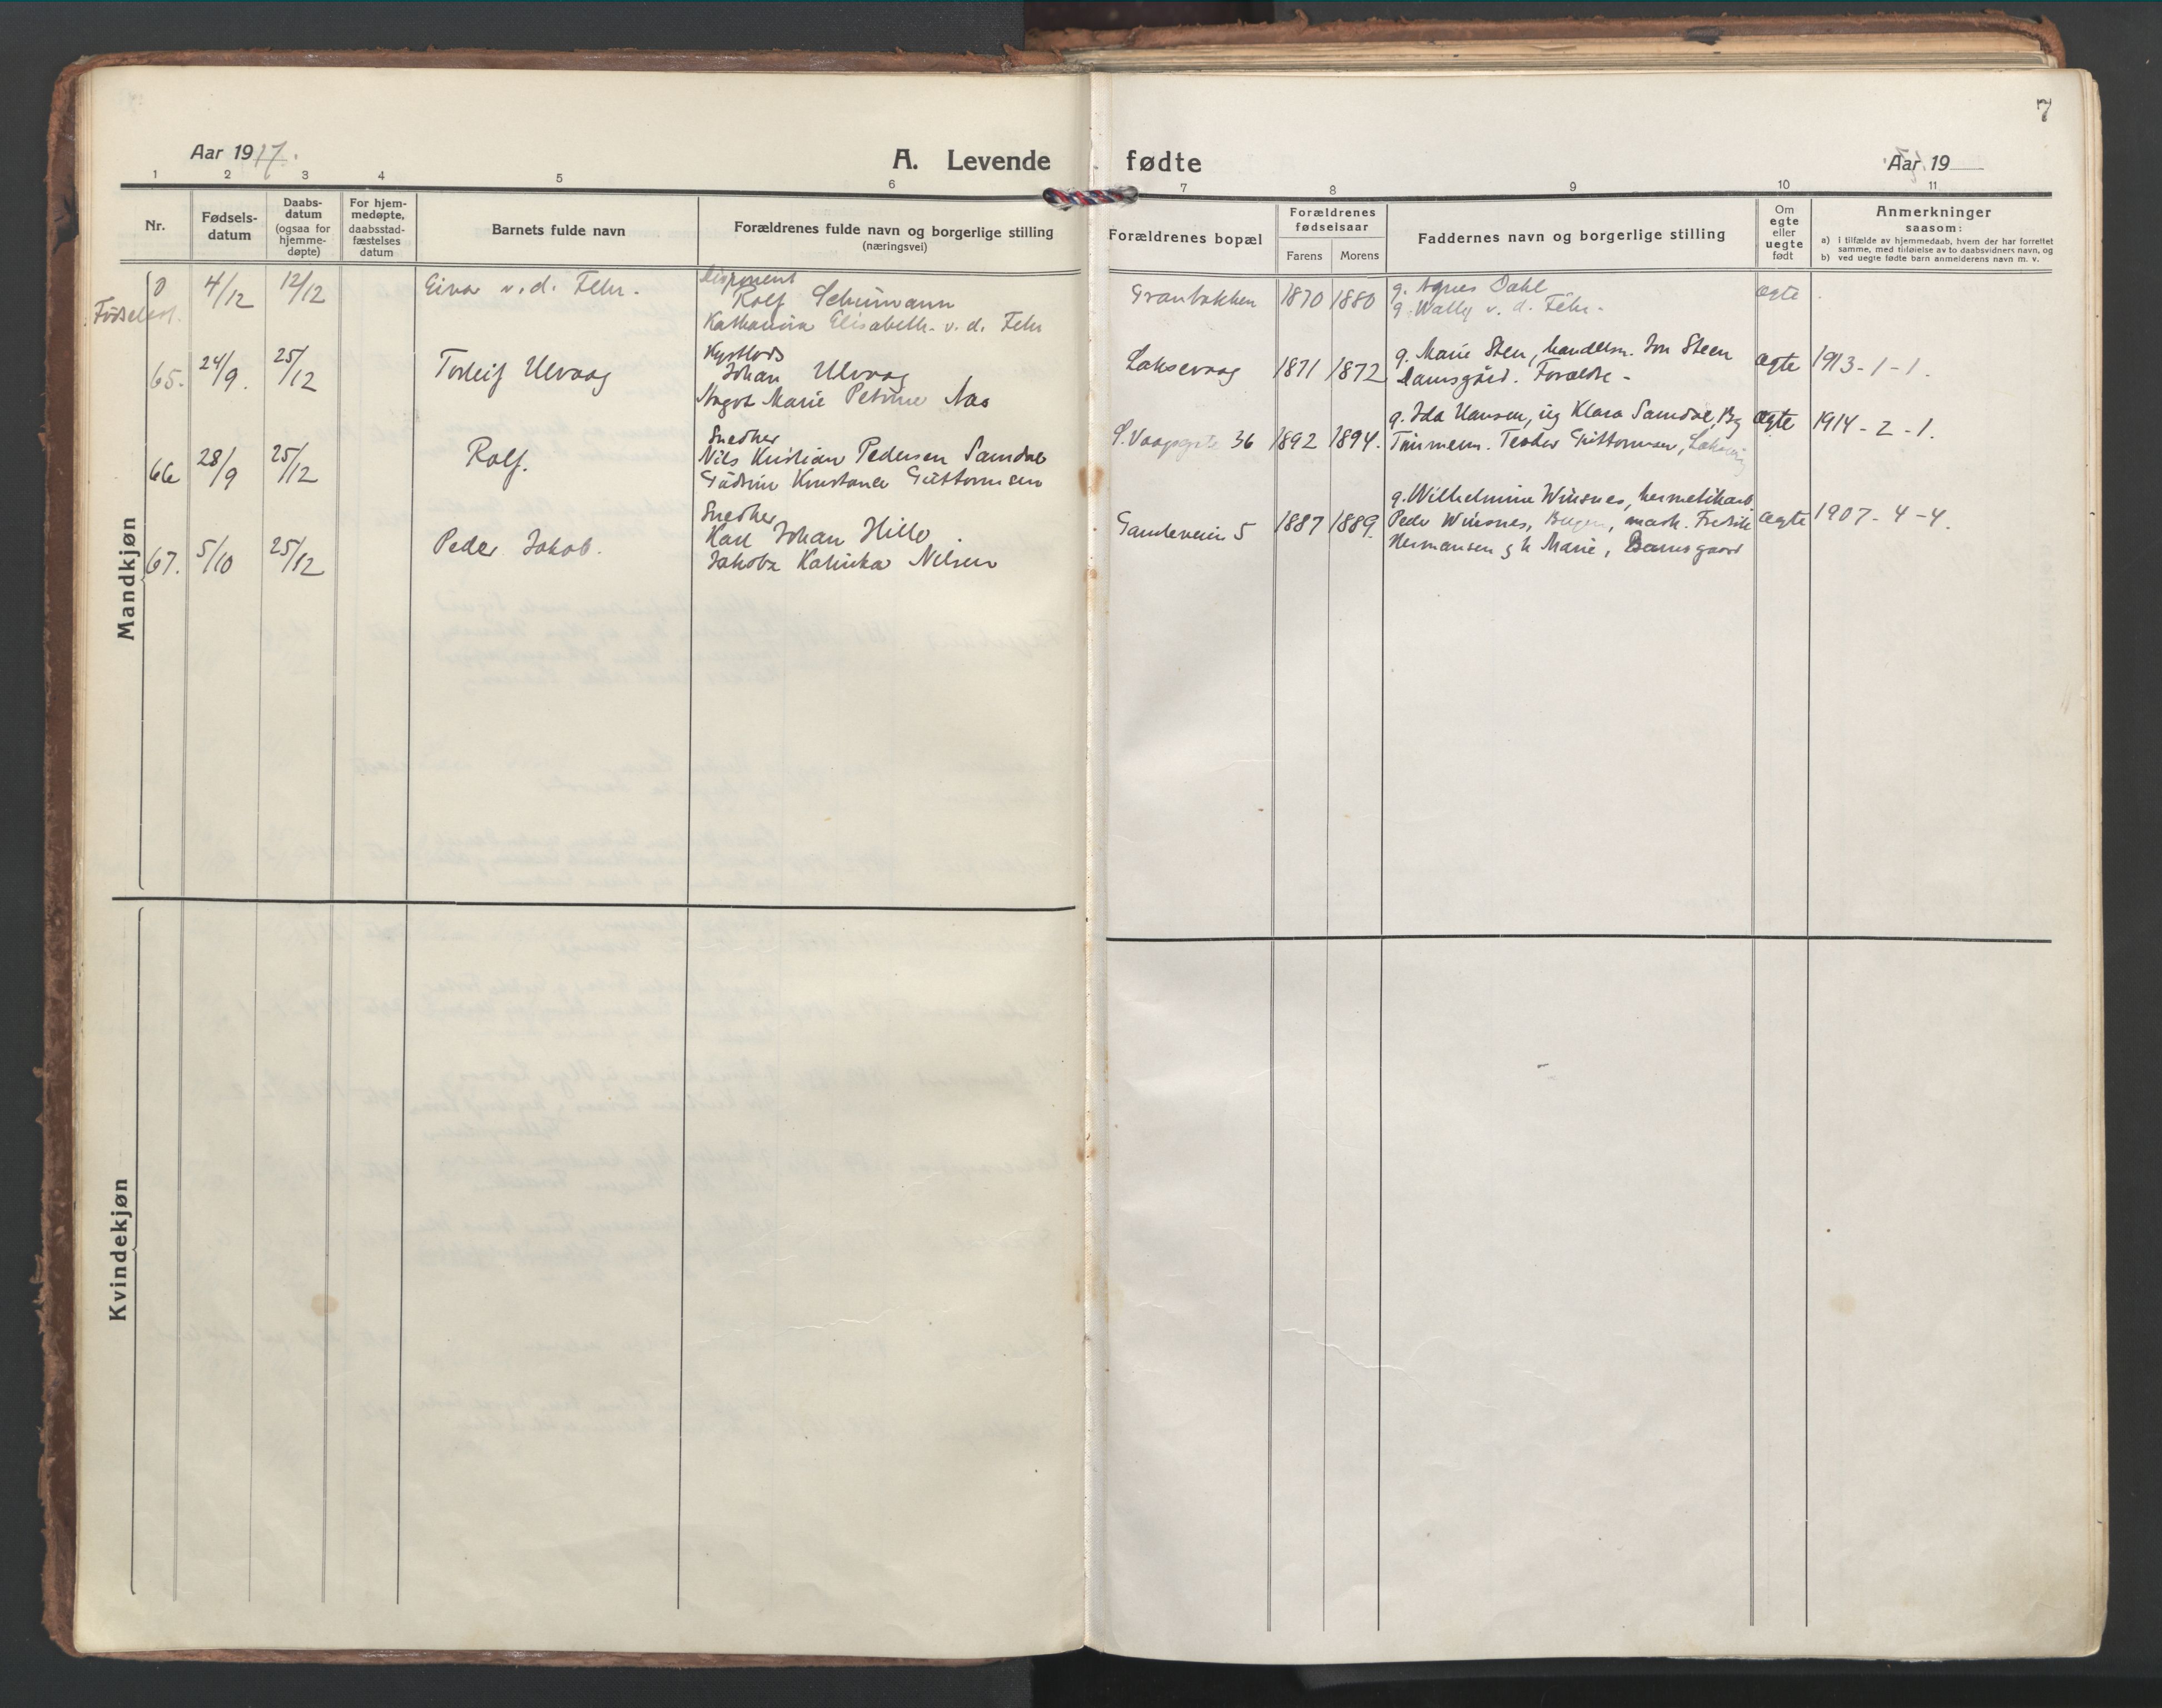 7
Aar 1917.
A. Levende fødte
Aar 19
1 2 3 4 5 6 7 8 9 10 11
Nr.
Fødsels-
datum
Daabs-
datum
(ogsaa for
hjemme-
døpte)
For hjem-
medøpte,
daabsstad-
fæstelses
datum
Barnets fulde navn
Forældrenes fulde navn og borgerlige stilling
(næringsvei)
Forældrenes bopæl
Forældrenes
fødselsaar
Farens Morens
Faddernes navn og borgerlige stilling
Om
egte
eller
uegte
født
Anmerkninger
saasom:
a) i tilfælde av hjemmedaab, hvem der har forrettet
samme, med tilføielse av to daabsvidners navn, og
b) ved uegte fødte barn anmelderens navn m. v.
Mandkjøn
0
4/12 12/12
v. d. Fehr.
Disponent
Rolf Schumann
Katharina Elisabeth v. d. Fehr
Granbakken 1870 1880
g. Agnes Dahl
g. Wally v. d. Fehr.
ægte
65. 24/9. 25/12
Torleif Ulvaag
Kystlods
Johan Ulvaag
Marie Petrine Aas
Laksevaag 1871 1872
g. Marie Steen, handelsm. Jon Steen
Damsgård. Forældre -
ægte 1913-1-1.
66 28/9 25/12
Rolf.
Snedker
Nils Kristian Pedersen Samdal
Konstance Guttormsen
36 1892 1894.
g. Ida Hansen, ug Klara Samdal, Bg
Tømmerm. Guttormsen,
ægte 1914-2-1.
67. 5/10 25/12
Peder Jakob.
Snedker
Karl Johan Hille
Jakoba Katinka Nilsen
5 1887 1889.
g. Wilhelmine Winsnes, hermetikarb.
Peder Winsnes, Bergen, mask. Fredrik
Hermansen g h Marie, Damsgaard
ægte 1907-4-4.
Kvindekjøn